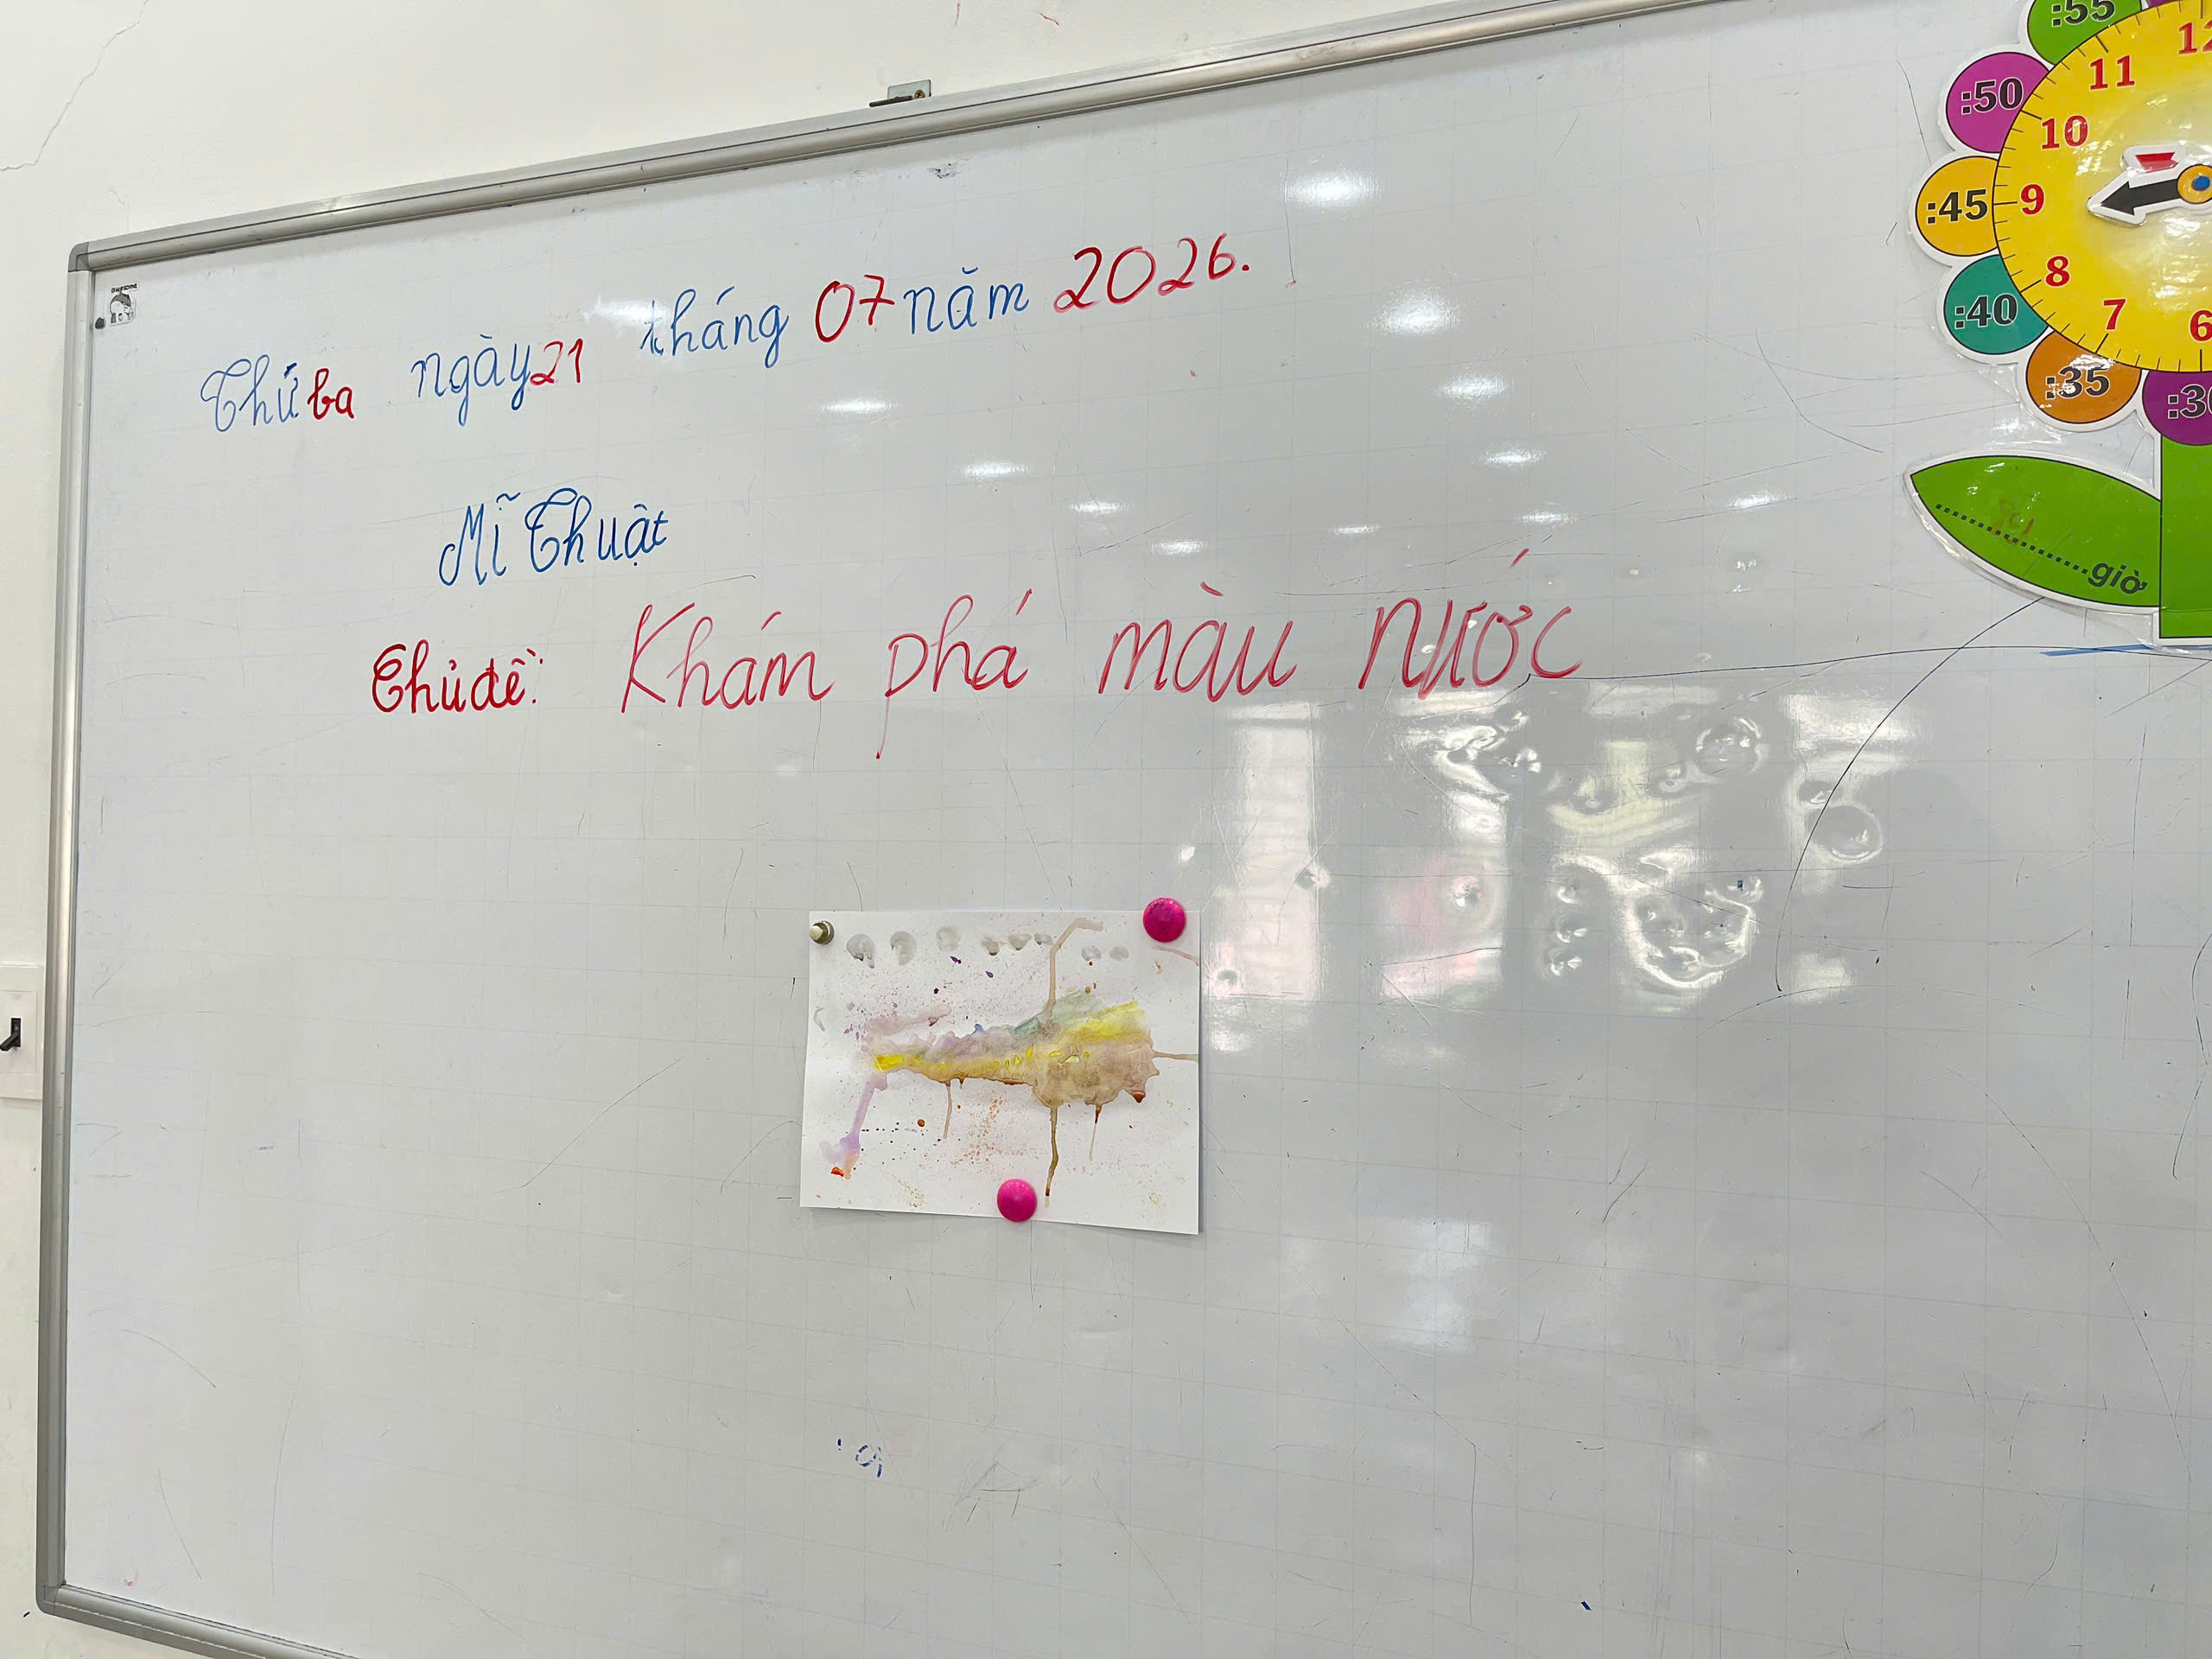 Thứ ba ngày 21 tháng 07 năm 2026.
Mĩ Thuật
Chủ đề: Khám phá màu nước
:55
:50
:45
:40
:35
12
11
10
9
8
7
6
giờ